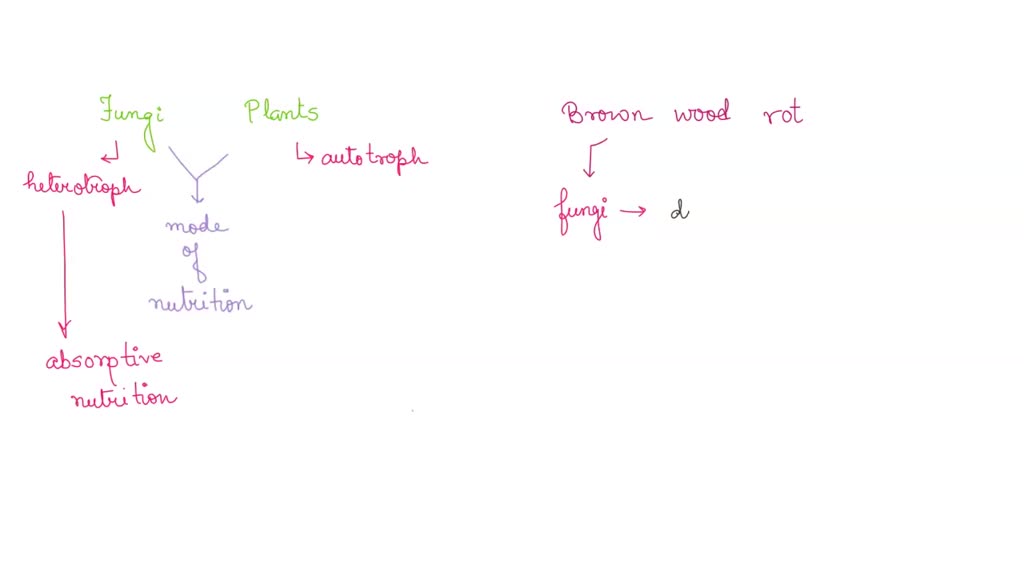 Fungi Plants
heterotroph
autotroph
mode
of
nutrition
absorptive
nutrition
Brown wood rot
fungi → d